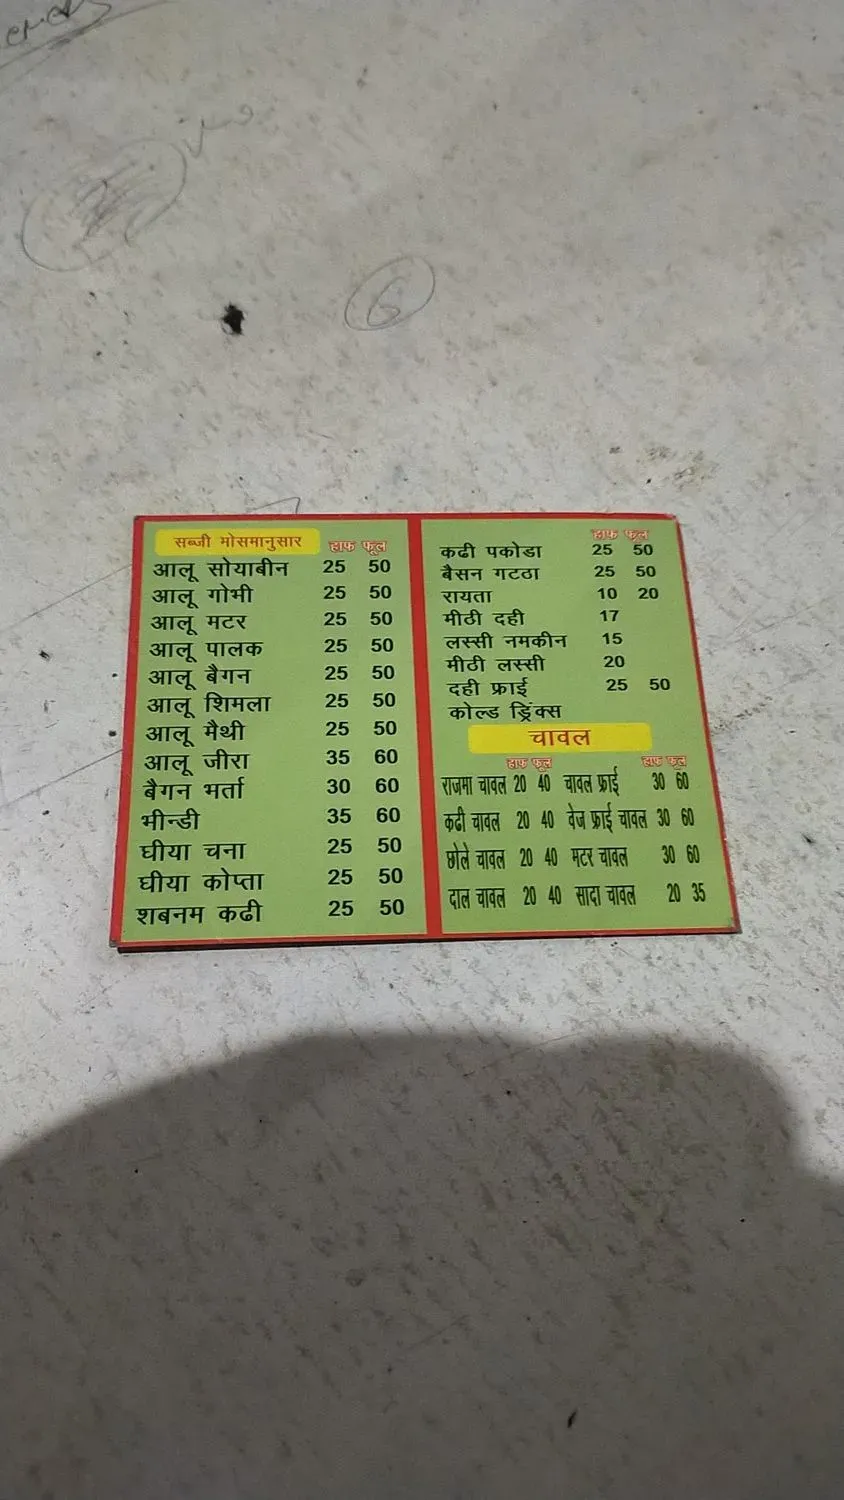 सब्जी मोसमानुसार हाफ फूल
आलू सोयाबीन 25 50
आलू गोभी 25 50
आलू मटर 25 50
आलू पालक 25 50
आलू बैगन 25 50
आलू शिमला 25 50
आलू मैथी 25 50
आलू जीरा 35 60
बैगन भर्ता 30 60
भीन्डी 35 60
घीया चना 25 50
घीया कोप्ता 25 50
शबनम कढी 25 50
हाफ फूल
कढी पकोडा 25 50
बैसन गटठा 25 50
रायता 10 20
मीठी दही 17
लस्सी नमकीन 15
मीठी लस्सी 20
दही फ्राई 25 50
कोल्ड ड्रिंक्स
चावल
हाफ फूल हाफ फूल
राजमा चावल 20 40 चावल फ्राई 30 60
कढी चावल 20 40 वेज फ्राई चावल 30 60
छोले चावल 20 40 मटर चावल 30 60
दाल चावल 20 40 सादा चावल 20 35
6